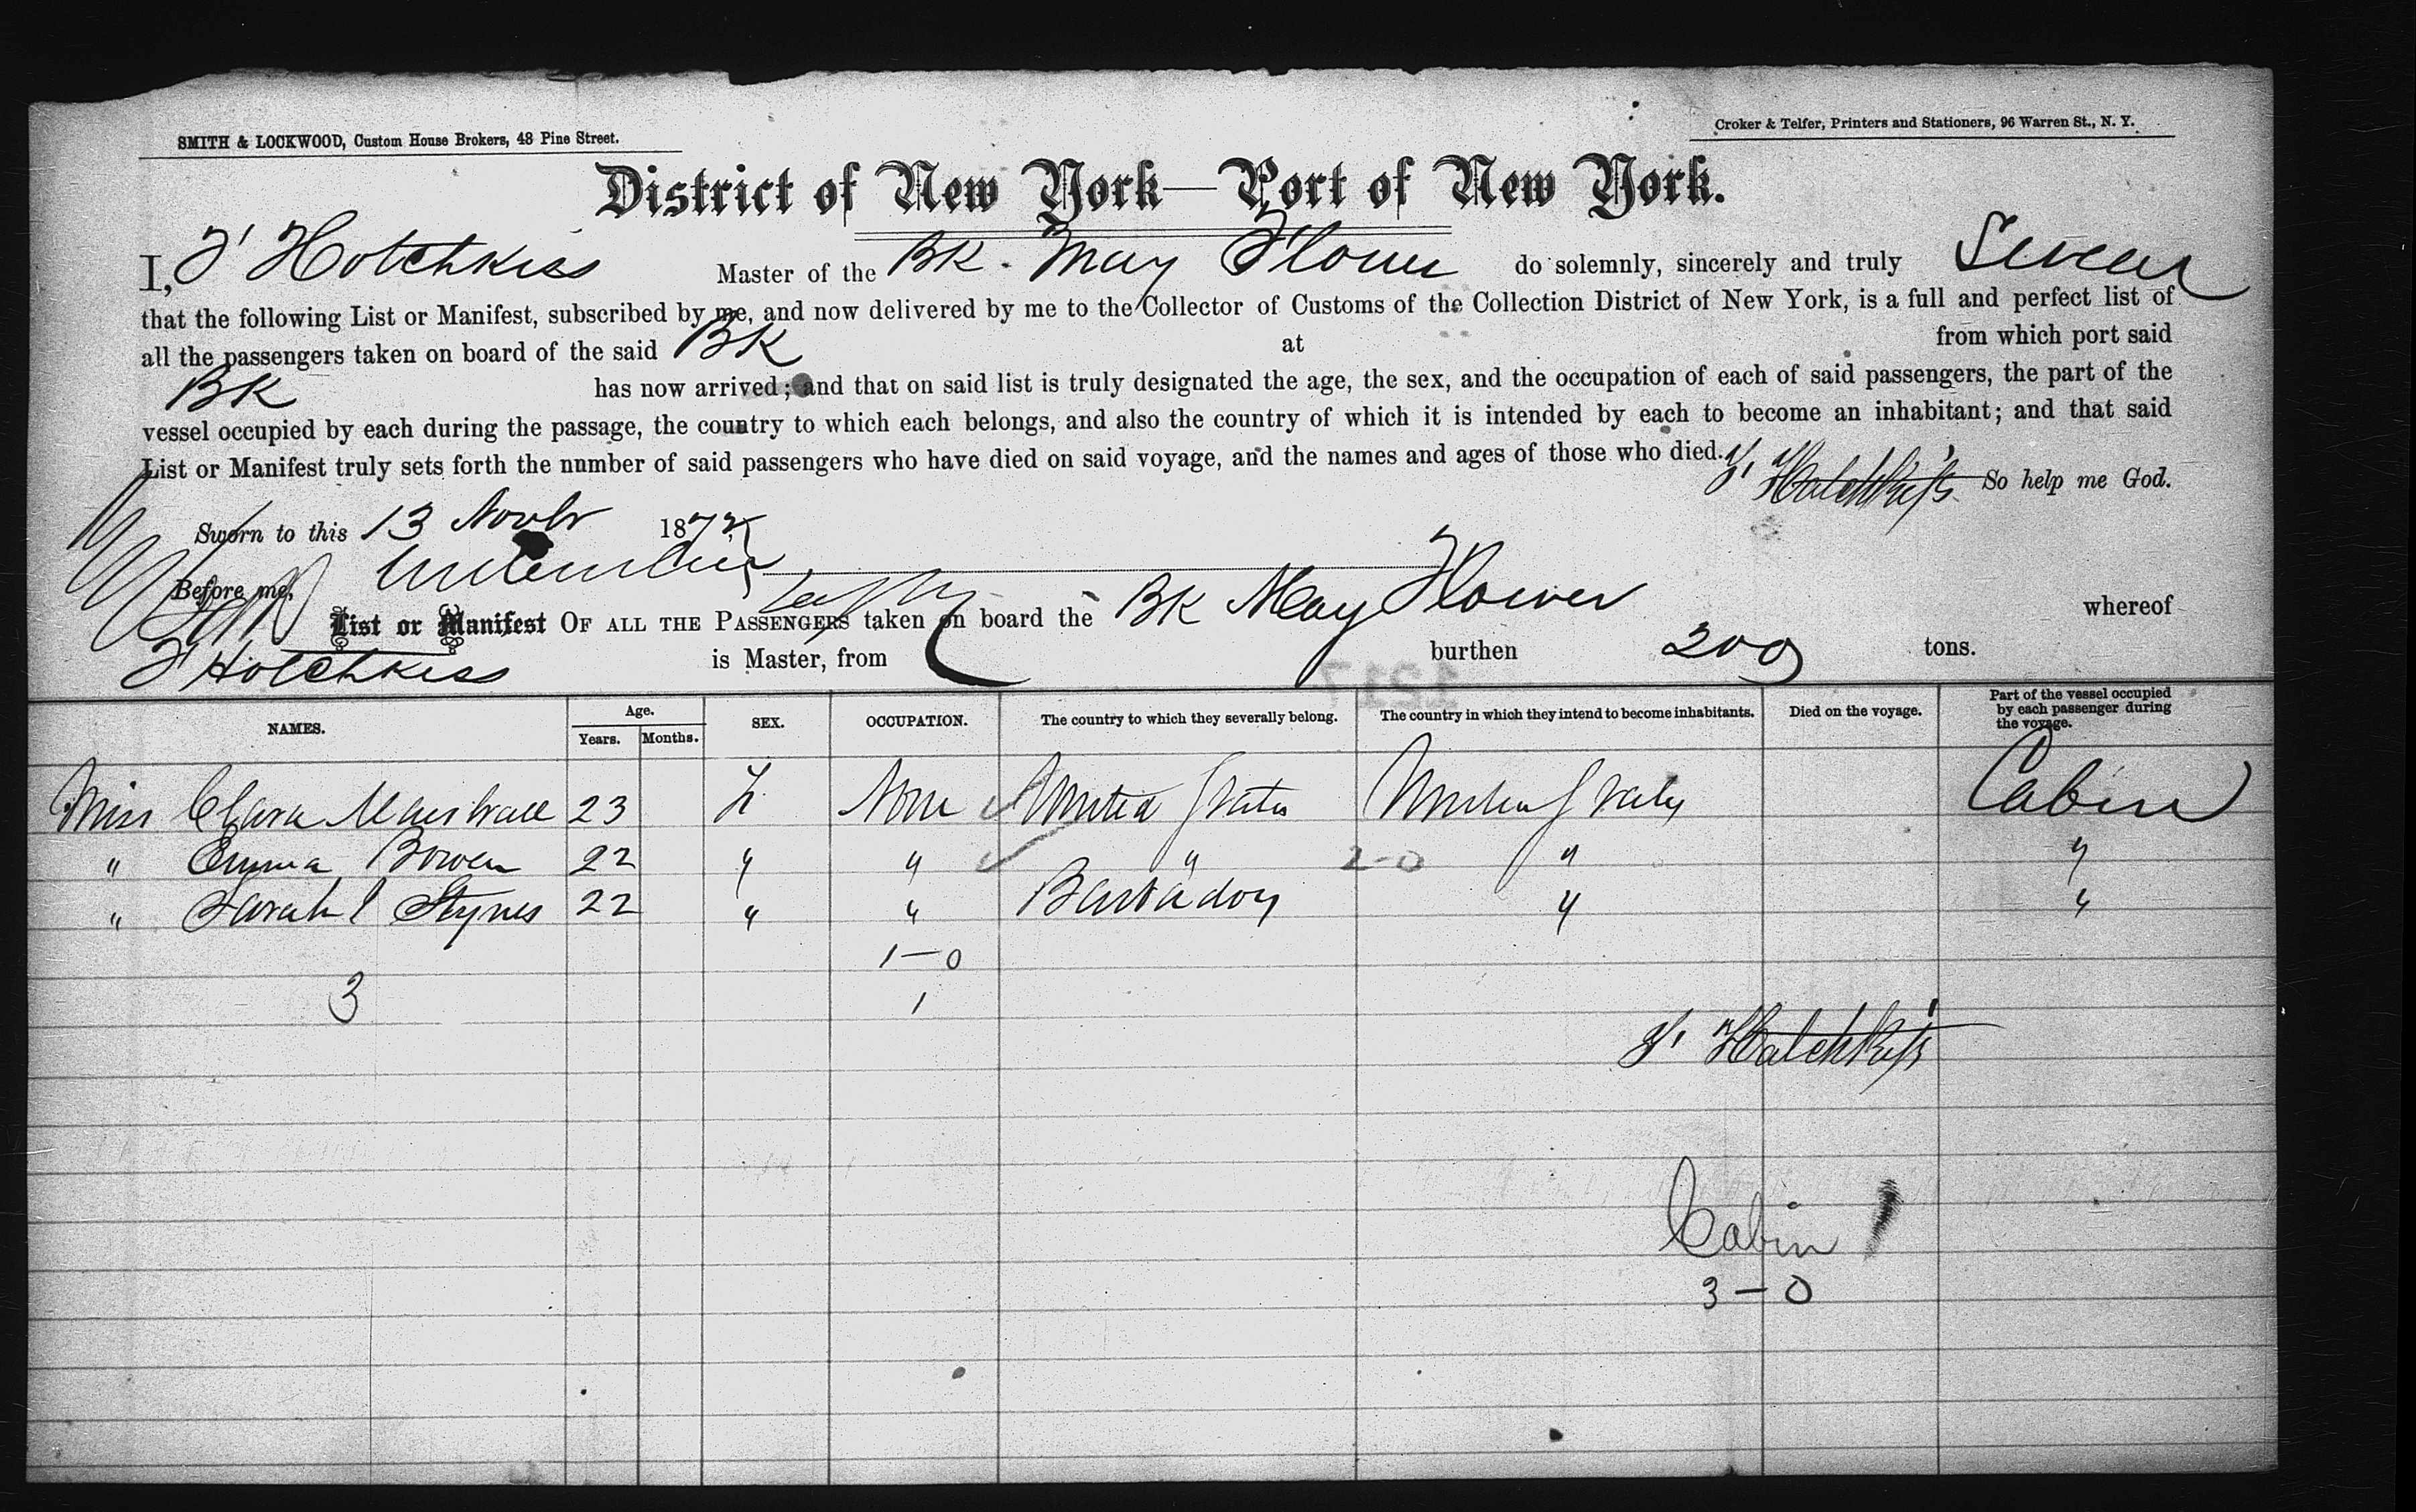 SMITH & LOCKWOOD, Custom House Brokers, 48 Pine Street.
Croker & Telfer, Printers and Stationers, 96 Warren St., N. Y.
District of New York—Port of New York.
I, F Hotchkiss Master of the BK. May Flower do solemnly, sincerely and truly Swear
that the following List or Manifest, subscribed by me, and now delivered by me to the Collector of Customs of the Collection District of New York, is a full and perfect list of
all the passengers taken on board of the said BK at from which port said
BK has now arrived; and that on said list is truly designated the age, the sex, and the occupation of each of said passengers, the part of the
vessel occupied by each during the passage, the country to which each belongs, and also the country of which it is intended by each to become an inhabitant; and that said
List or Manifest truly sets forth the number of said passengers who have died on said voyage, and the names and ages of those who died.
F. Hotchkiss So help me God.
Sworn to this 13 Novbr 1872
Before me,
List or Manifest OF ALL THE PASSENGERS taken on board the BK May Flower whereof
F Hotchkiss is Master, from burthen 200 tons.
1217
NAMES. Age. Years. Months. SEX. OCCUPATION. The country to which they severally belong. The country in which they intend to become inhabitants. Died on the voyage. Part of the vessel occupied by each passenger during the voyage.
Miss Clara Marshall 23 F. None United States United States Cabin
" Emma Bowen 22 " " " 2-0 " "
" Sarah Stynes 22 " " Barbadoes " "
1-0
3 1
F. Hotchkiss
Cabin
3-0